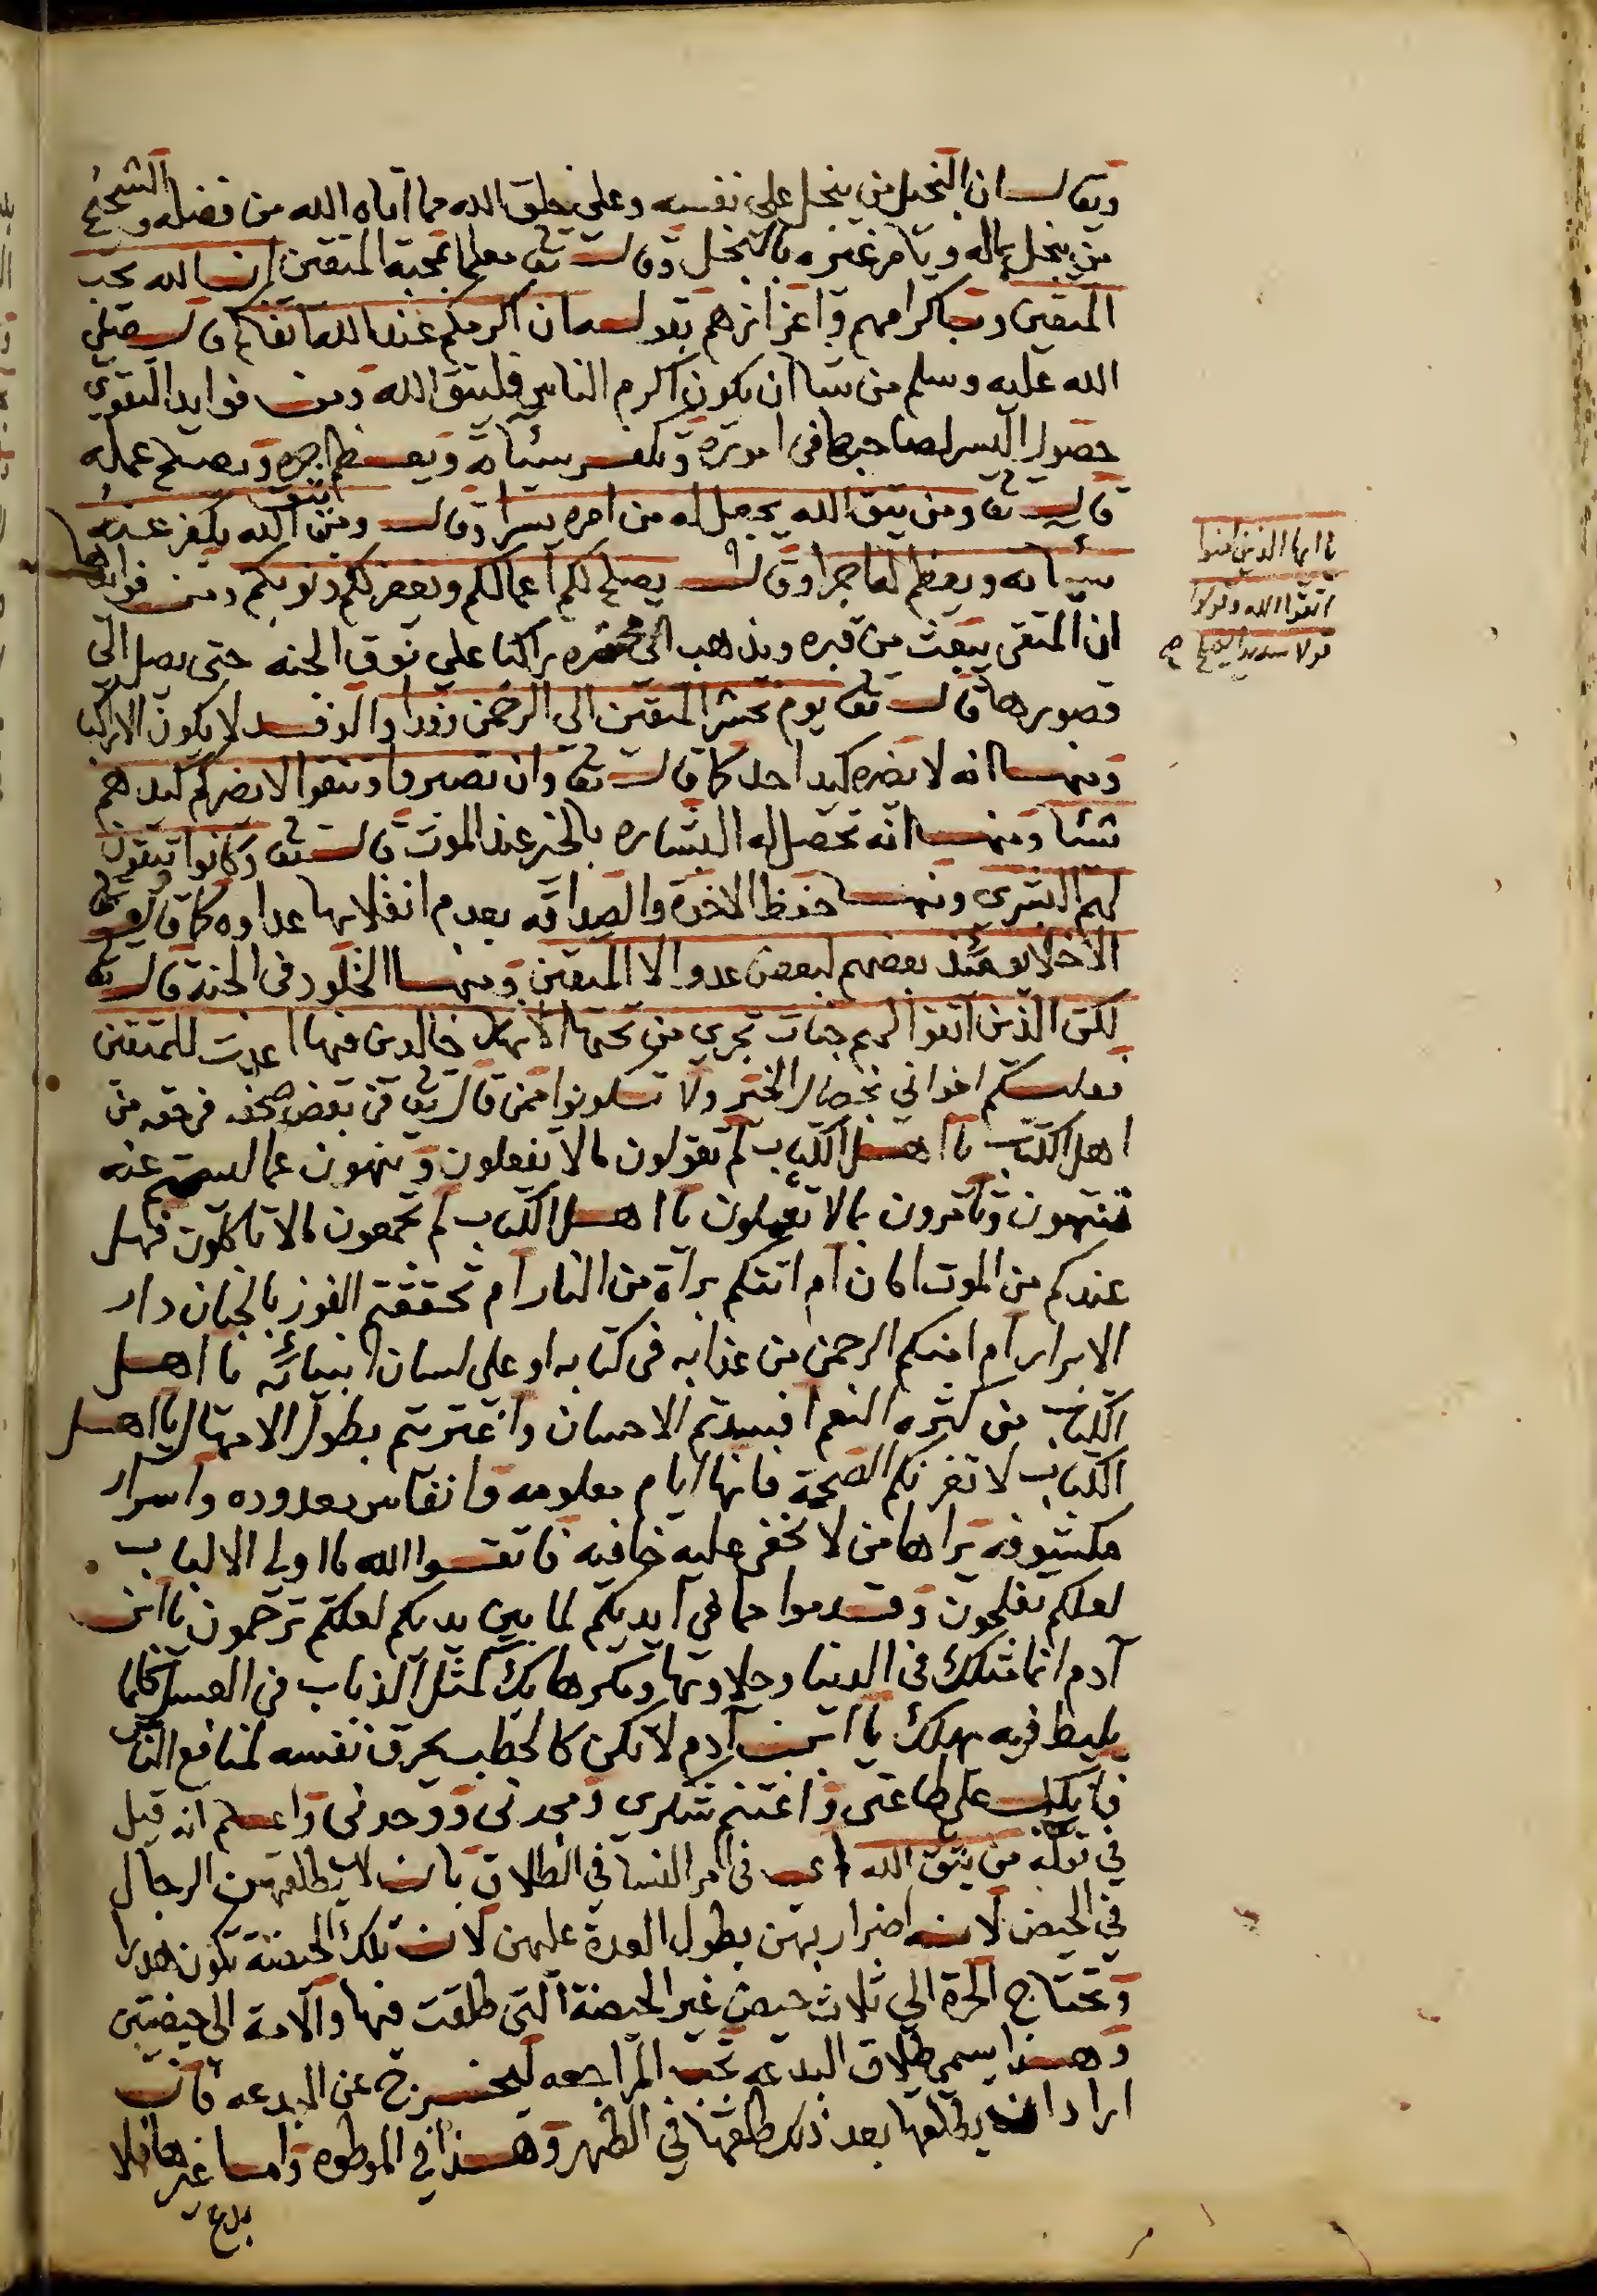 ويقال ان البخيل من يبخل على نفسه وعلى خلق الله مما اتاه الله من فضله والشحيح
من يبخل بماله ويامر غيره بالبخل وقال تعا معلما بمحبة المتقين ان الله يحب
المتقين وباكرامهم واعزازهم بقوله ان اكرمكم عند الله اتقاكم قال صلى
الله عليه وسلم من شا ان يكون اكرم الناس فليتق الله ومن فوايد التقوي
حصول اليسر لصاحبها في اموره وتكفير سيئاته ويعظم اجره ويصلح عمله
قال تعا ومن يتق الله يجعل له من امره يسرا وقال ومن يتق الله يكفر عنه
سيئاته ويعظم له اجرا وقال يصلح لكم اعمالكم ويغفر لكم ذنوبكم ومن فوايدها
ان المتقى يبعث من قبره ويذهب الى محشره راكبا علي نوق الجنه حتى يصل الي
قصورها قال تعا يوم نحشر المتقين الى الرحمن وفدا والوفد لا يكون الا راكبا
ومنها انه لا يضره كيد احد كما قال تعا وان تصبروا وتتقوا لا يضركم كيدهم
شئيا ومنها انه تحصل له البشاره بالخير عند الموت قال تعا وكانوا يتقون
لهم البشرى ومنها حفظ الاخوة والصداقه بعدم انقلابها عداوه كما قال تعالى
الاخلا يومئذ بعضهم لبعض عدوا الا المتقين ومنها الخلود في الجنة قال تعا
لكن الذين اتقوا ربهم جنات تجري من تحتها الانهار خالدين فيها اعدت للمتقين
فعليكم اخواني بخصال الخير ولا تكونوا ممن قال تعا في بعض صحفه فى حقه من
اهل الكتاب يا اهل الكتاب لم تقولون ما لا تفعلون وتنهون عما لستم عنه
تنتهون وتامرون بما لا تعملون يا اهل الكتاب لم تجمعون ما لا تاكلون فهل
عندكم من الموت امان ام اتتكم براة من النار ام تحققتم الفوز بالجنان دار
الابرار ام امنكم الرحمن من عذابه في كتابه او على لسان انبيائه يا اهل
الكتاب من كثره النعم افسدتم الاحسان واغتريتم بطول الامهال يا اهل
الكتاب لا تغرنكم الصحة فانها ايام معلومه وانفاس معدوده واسرار
مكشوفه يراها من لا تخفى عليه خافيه فاتقوا الله يا اولى الالباب
لعلكم تفلحون وقدموا مما في ايديكم لما بين يديكم لعلكم ترحمون يا ابن
آدم انما مثلك في الدنيا وحلاوتها ومكرها بك كمثل الذباب في العسل كلما
يليط فيه يهلك يا ابن آدم لا تكن كالحطب يحرق نفسه لمنافع الناس
فاقبل على طاعتى واغتنم شكرى ومجدنى ووحدنى واعلم انه قيل
في قوله من يتق الله اى في امر النسا في الطلاق بان لا يطلقهن الرجال
في الحيض لانه اضرار بهن بطول العدة عليهن لان تلك الحيضة تكون هدرا
وتحتاج الحرة الي ثلاث حيض غير الحيضة التى طلقت فيها والامة الى حيضتين
وهذا يسمى طلاق البدعه تجب المراجعه ليخرج عن البدعه فان
اراد ان يطلقها بعد ذلك طلقها في الطهر وهذا في الموطوه واما غيرها فلا
بدع
يا ايها الذين امنوا
اتقوا الله وقولوا
قولا سديدا يصلح صح